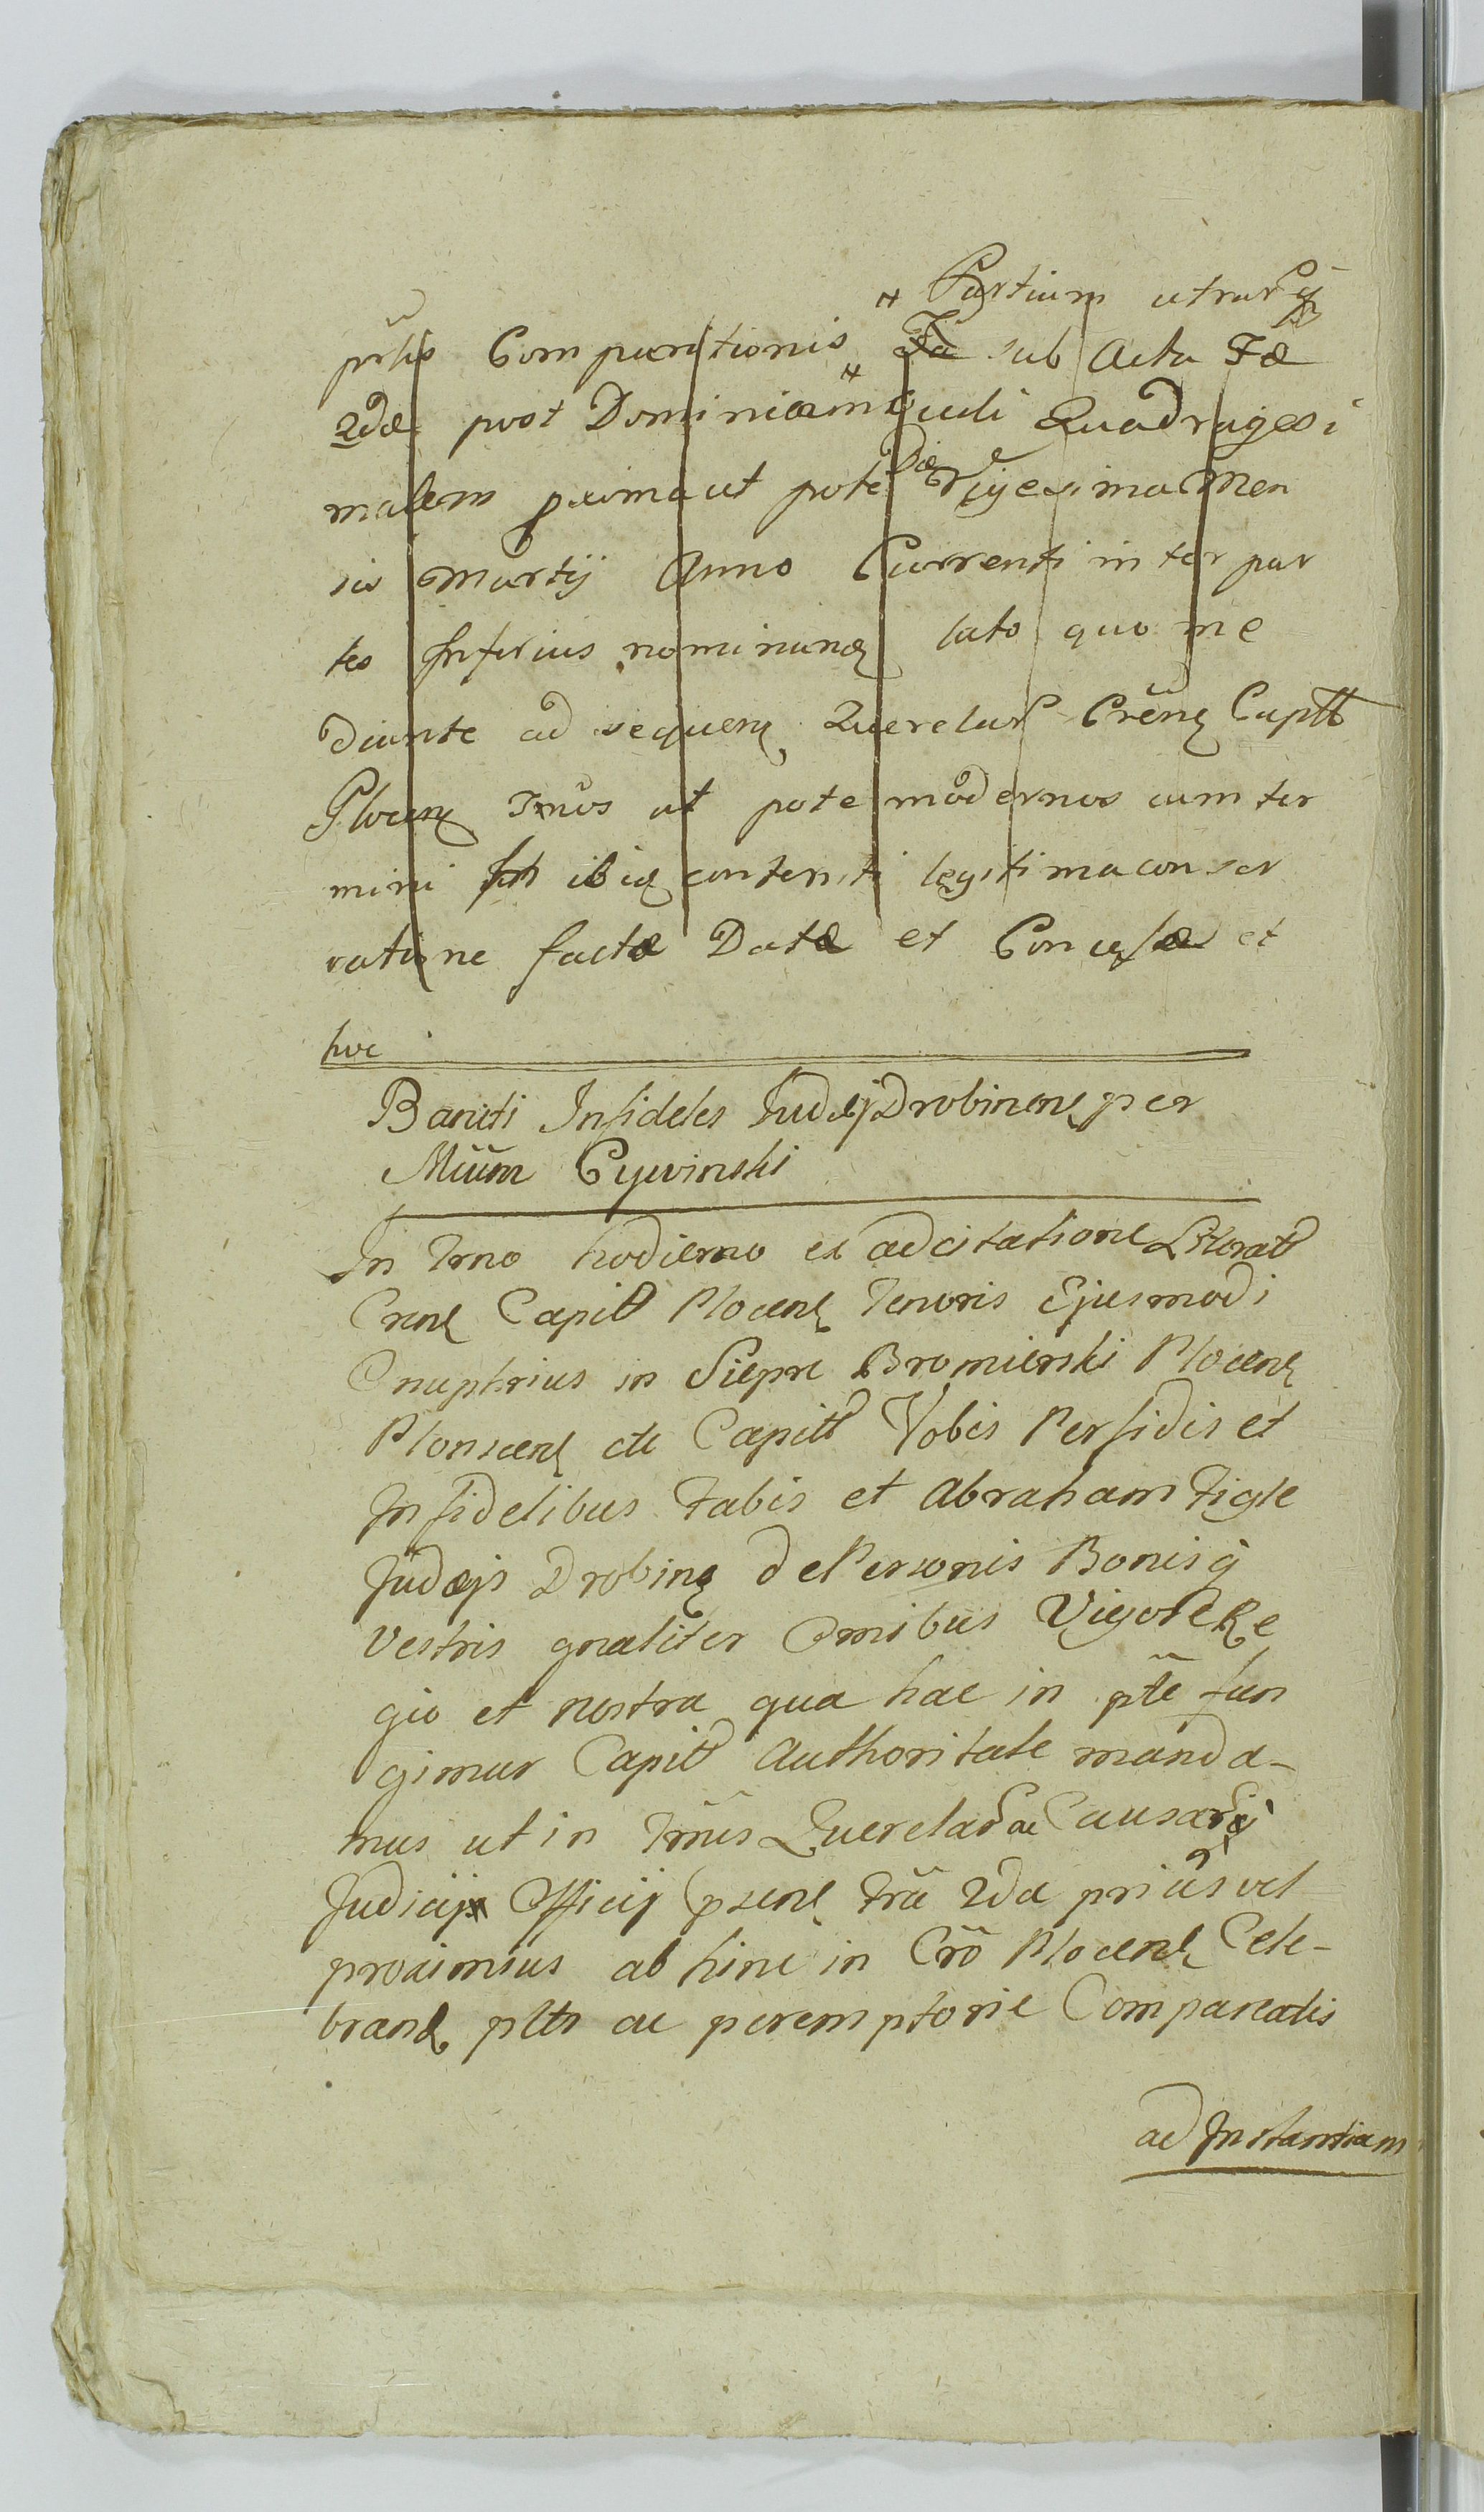 Partium utrarq
prñs Comparitionis Fa sub Actu Fæ
2dæ post Dominicam Oculi Quadragesi
malem proxima ut pote Die Vigesima Men
sis Martij Anno Currenti inter par
tes Inferius nominan lato quo me
diante ad sequen Querelar Crẽn Captt
Plocen Tmõs ut pote modernos cum ter
mini ibiq contenti legitima conser
vatione factæ Datæ et Concessæ et
hoc
Baniti Infideles Judej Drobinen per
Mm̃ Cywinski
In Tmo hodierno ex adcitatione Literatt
Cren Capitt Plocen Tenoris Ejusmodi
Onuphrius in Siepre Bromierski Plocen
Plonscen etc Capitt Vobis Perfidis et
Infidelibus Tabis et Abraham Figle
Judæis Drobin de Personis Bonisq
Vestris gnaliter Omibus Vigore Re
gio et nostra qua hac in ptẽ fun
gimur Capitt Authoritate manda-
mus ut in Tm̃is Querelar ac Causarq
Judicij Officij psen frã 2da prius vel
proximius ab hinc in Crõ Plocen Cele-
bran pltr ac peremptorie Compareatis
ad Instantiam